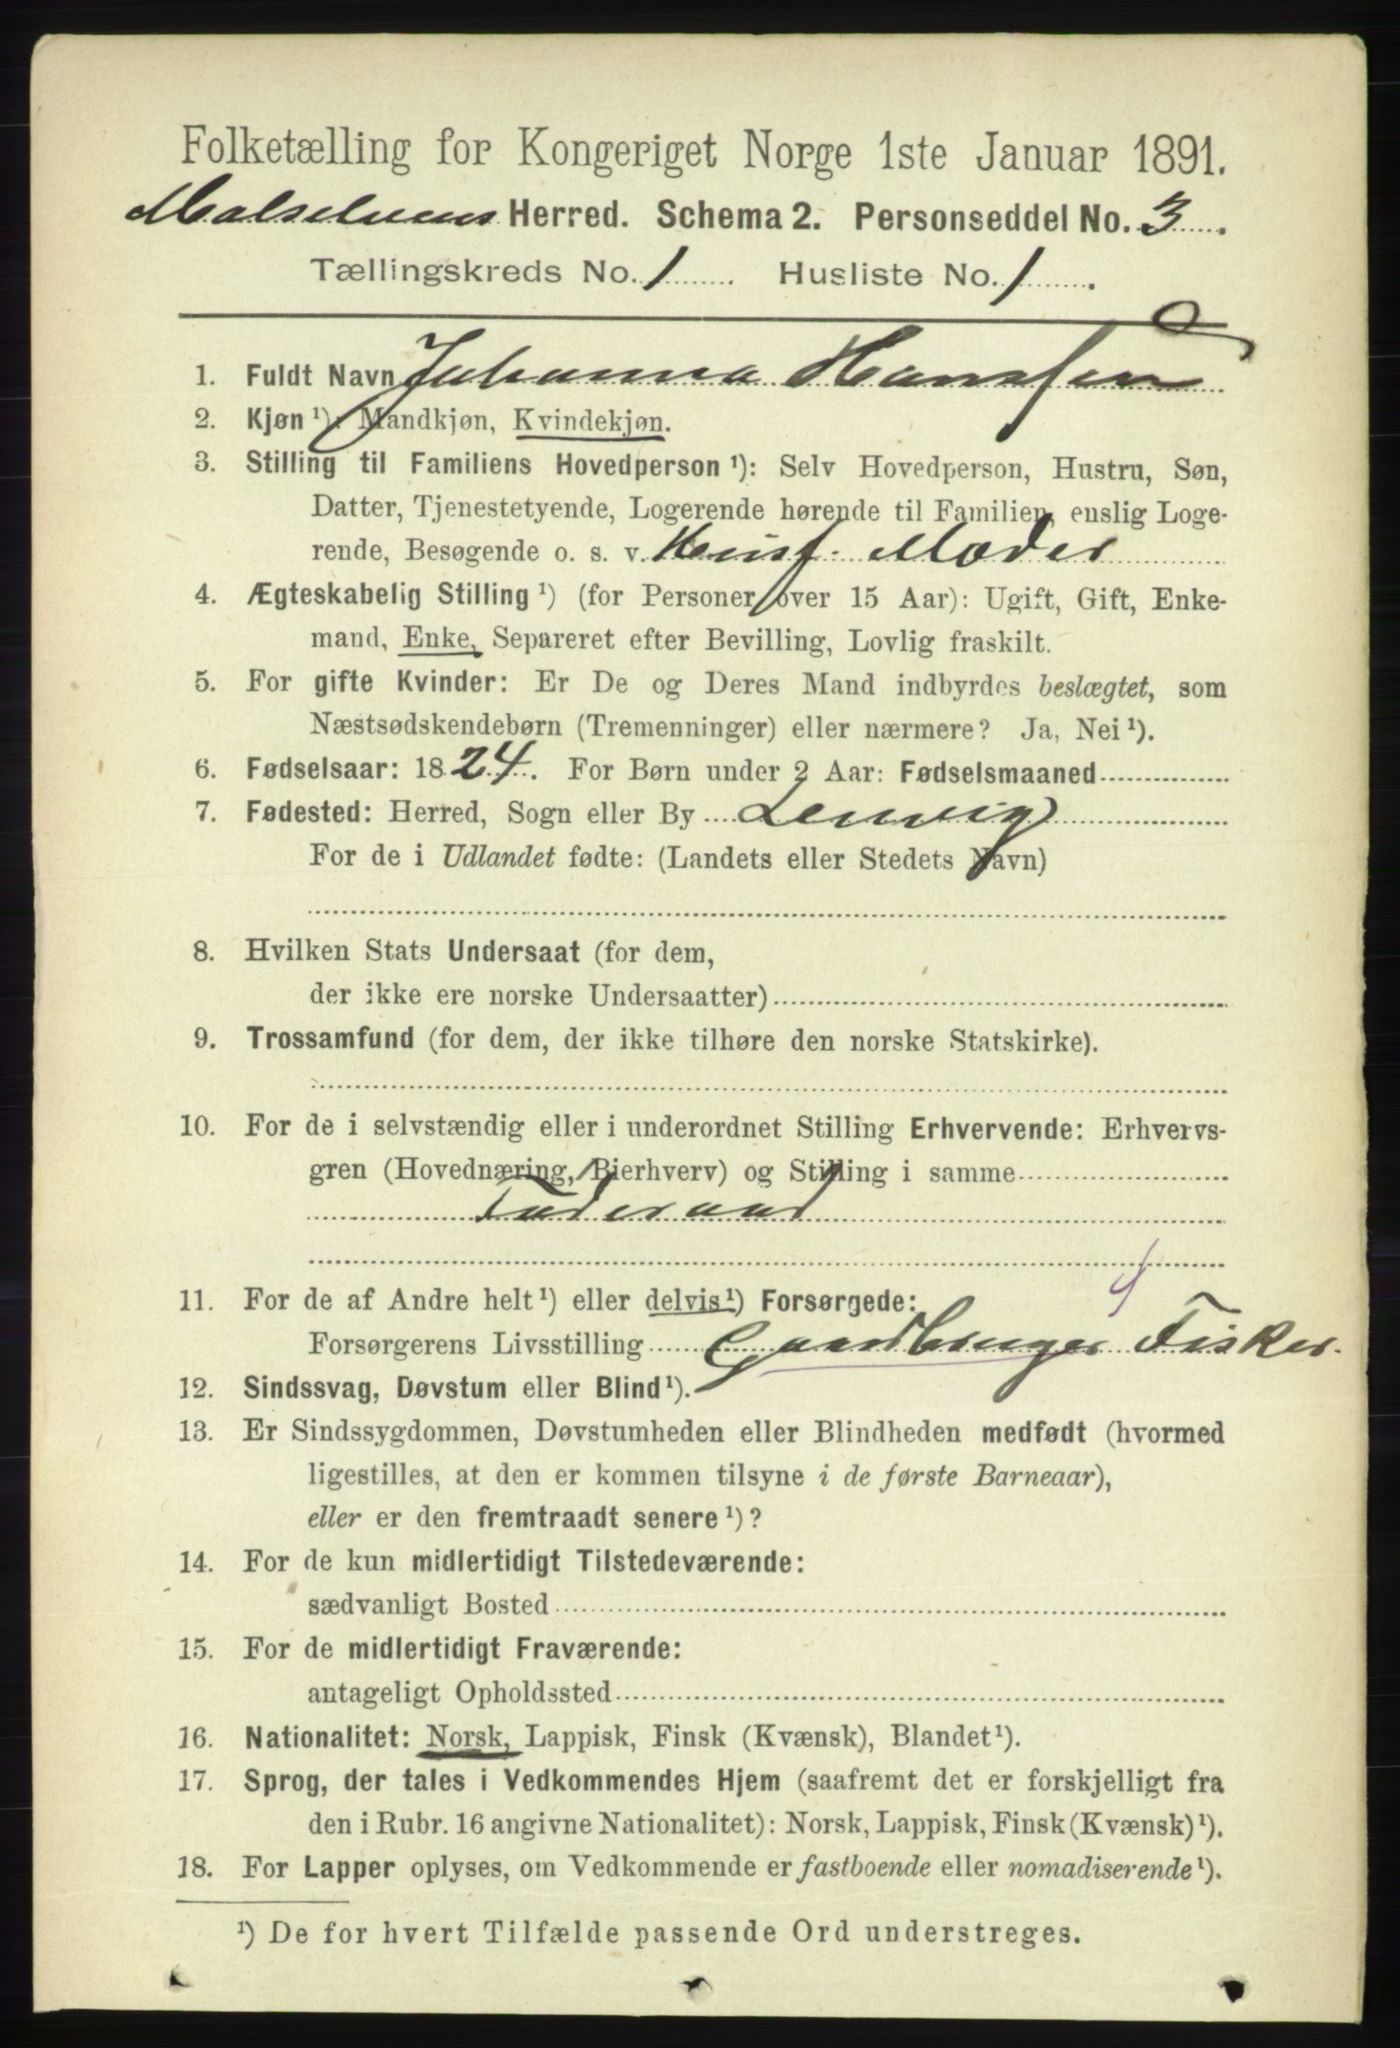 Folketælling for Kongeriget Norge 1ste Januar 1891.
Malselvens Herred. Schema 2. Personseddel No. 3.
Tællingskreds No. 1. Husliste No. 1.
1. Fuldt Navn Johanna Hansen
2. Kjøn ¹): Mandkjøn, Kvindekjøn.
3. Stilling til Familiens Hovedperson ¹): Selv Hovedperson, Hustru, Søn,
Datter, Tjenestetyende, Logerende hørende til Familien, enslig Loge-
rende, Besøgende o. s. v. Husf. Moder
4. Ægteskabelig Stilling ¹) (for Personer over 15 Aar): Ugift, Gift, Enke-
mand, Enke, Separeret efter Bevilling, Lovlig fraskilt.
5. For gifte Kvinder: Er De og Deres Mand indbyrdes beslægtet, som
Næstsødskendebørn (Tremenninger) eller nærmere? Ja, Nei ¹).
6. Fødselsaar: 1824. For Børn under 2 Aar: Fødselsmaaned
7. Fødested: Herred, Sogn eller By Lenvig
For de i Udlandet fødte: (Landets eller Stedets Navn)
8. Hvilken Stats Undersaat (for dem,
der ikke ere norske Undersaatter)
9. Trossamfund (for dem, der ikke tilhøre den norske Statskirke).
10. For de i selvstændig eller i underordnet Stilling Erhvervende: Erhvervs-
gren (Hovednæring, Bierhverv) og Stilling i samme
Føderaad
4
11. For de af Andre helt ¹) eller delvis ¹) Forsørgede:
Forsørgerens Livsstilling Gaardbruger Fisker.
12. Sindssvag, Døvstum eller Blind ¹).
13. Er Sindssygdommen, Døvstumheden eller Blindheden medfødt (hvormed
ligestilles, at den er kommen tilsyne i de første Barneaar),
eller er den fremtraadt senere ¹)?
14. For de kun midlertidigt Tilstedeværende:
sædvanligt Bosted
15. For de midlertidigt Fraværende:
antageligt Opholdssted
16. Nationalitet: Norsk, Lappisk, Finsk (Kvænsk), Blandet ¹).
17. Sprog, der tales i Vedkommendes Hjem (saafremt det er forskjelligt fra
den i Rubr. 16 angivne Nationalitet): Norsk, Lappisk, Finsk (Kvænsk) ¹).
18. For Lapper oplyses, om Vedkommende er fastboende eller nomadiserende ¹).
¹) De for hvert Tilfælde passende Ord understreges.